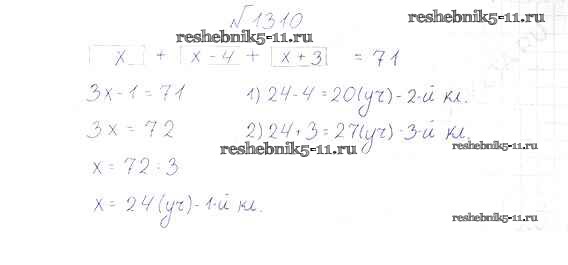 №1310
reshebnik5-11.ru
reshebnik5-11.ru
x + x - 4 + x + 3 = 71
3x - 1 = 71 1) 24 - 4 = 20 (уч) - 2-й кл.
3x = 72 2) 24 + 3 = 27 (уч) - 3-й кл.
reshebnik5-11.ru
reshebnik5-11.ru
x = 72 : 3
x = 24 (уч) - 1-й кл.
reshebnik5-11.ru